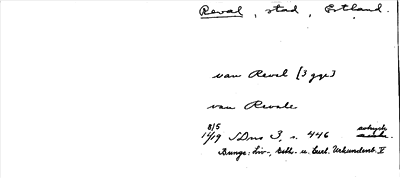 Reval, stad, Estland.
van Revel [3 ggr]
van Revale
8/5 1419 SDns 3, s. 446
Bunge: Liv-, Esth- u. Curl. Urkundenb. V